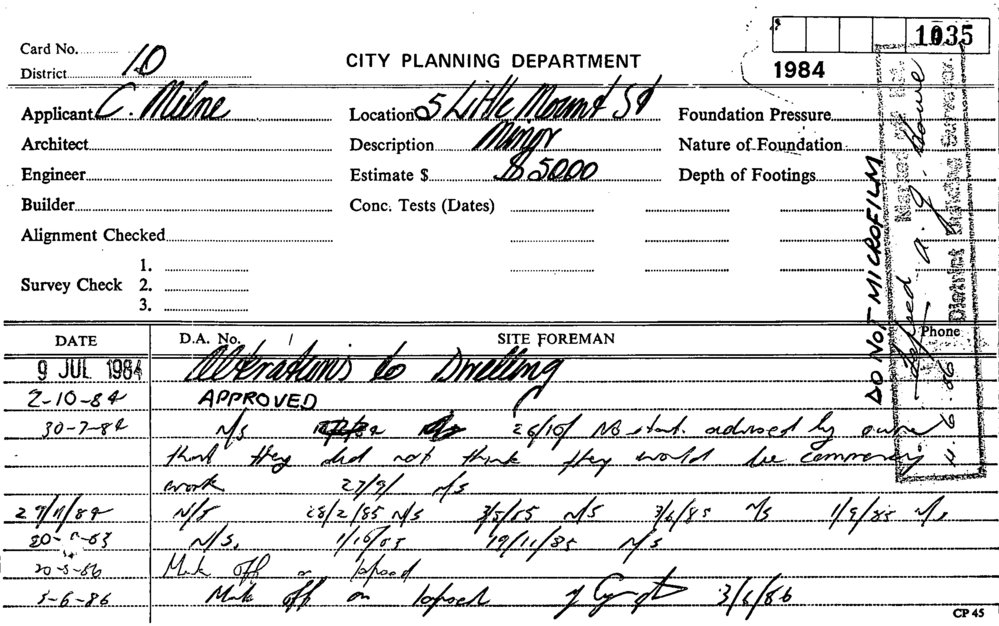 1035
Card No.
District 10
CITY PLANNING DEPARTMENT
1984
Applicant C. Milne
Location 5 Little Mount St
Foundation Pressure
Architect
Description Minor
Nature of Foundation
Engineer
Estimate $ $ 5000
Depth of Footings
Builder
Conc. Tests (Dates)
Alignment Checked
Survey Check
1.
2.
3.
DO NOT MICROFILM
District Building Surveyor
DATE
D.A. No.
SITE FOREMAN
Phone
9 JUL 1984 Alterations to Dwelling
2-10-84 APPROVED
30-7-84 N/S 26/10/ No start. advised by owner
that they did not think they would be commencing
work 27/9/ N/S
27/11/84 N/S 28/2/85 N/S 3/5/85 N/S 3/6/85 N/S 1/9/85 N/S
N/S. 19/11/85 N/S
20-5-86 Mark off as lapsed
3-6-86 Mark off as lapsed 3/6/86
CP 45